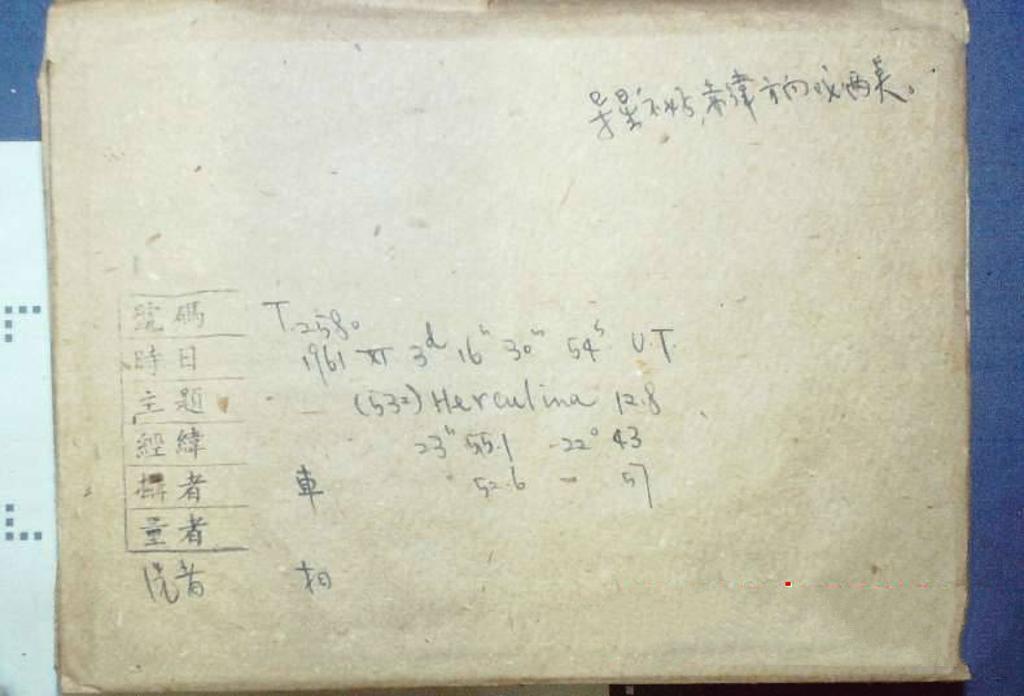 导星不好,赤緯方向成兩点。
號碼 T.2580
時日 1961 XI 3d 16h 30m 54s U.T.
主題 (532) Herculina 12.8
經緯 23h 55.1 -22° 43
攝者 車 52.6 - 57
量者
洗者